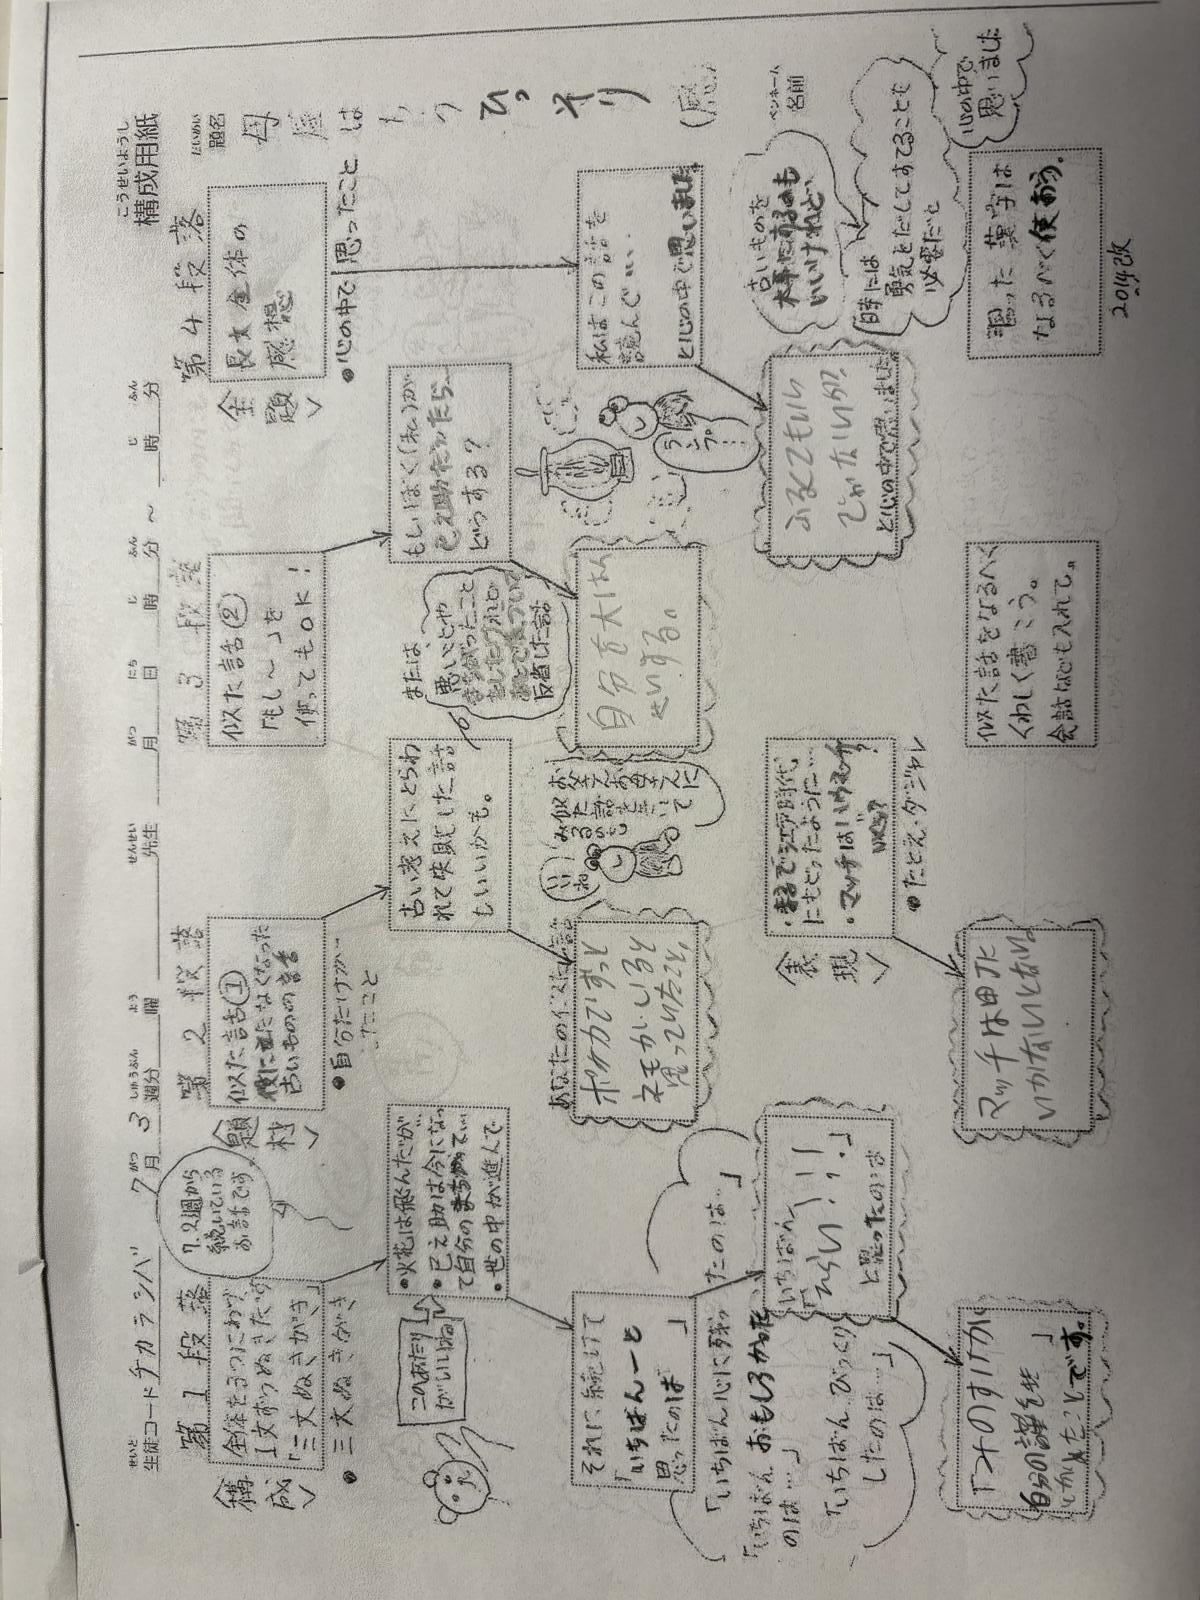 こうせいようし
構成用紙
せいと
生徒コード チカラシバ
7月 3週分 曜 先生 月 日 時 分 ～ 時 分
がつ しゅうぶん よう せんせい がつ にち じ ふん じ ふん
だいめい
題名 母屋はもうひっそり (感)
ペンネーム
名前
第1段落
構成
全体を3つにわけ
1文ずつぬきだす
「三文ぬきがき」
●三文ぬきがき
7.2週から
続いている
お話です。
このあたり
がいいね
・火花は飛んだが…
・巳之助は今になっ
て自分のまちがい…
・世の中が進んで
それに続けて
「いちばん―と
思ったのは 」
「いちばん心に残っ
たのは…」
「いちばんおもしろかった
のは…」
「いちばんびっくり
したのは…」
いちばん
「えらい!!!。」
と思ったのは
第2段落
題材
似た話①
役にたたなくなった
古いものの話
●自分だけが
古い考えにとらわ
れて失敗した話
もいいかも。
ポケカでずっと
ネモがいいると
思っていたこと。
いい
ね
お父さんお母さんに
似た話を聞いて
みる
表現
・まるで江戸時代
にもどったように…
・マッチは
●たとえ・ダジャレ
マッチは田丁に
いかないとない。
第3段落
似た話②
「もし～」を
使ってもOK!
もしぼく(私)が
巳之助だったら
どうする?
または、
悪いことや
まちがったこと
をしたけれど
あとで気づいて
反省した話
自分を大はん
せいする。
似た話をなるべく
くわしく書こう。
会話なども入れて。
第4段落
主題
長文全体の
感想
●心の中で思ったこと
私はこの話を
読んで…
と心の中で思いました
ランプ…
ふるくてもいい
じゃないか。
と心の中で思いました。
古いものを
大事にするのも
いいけれど
時には
勇気をだしてすてることも
必要だと
心の中で
思いました
習った漢字は
なるべく使おう。
2014改